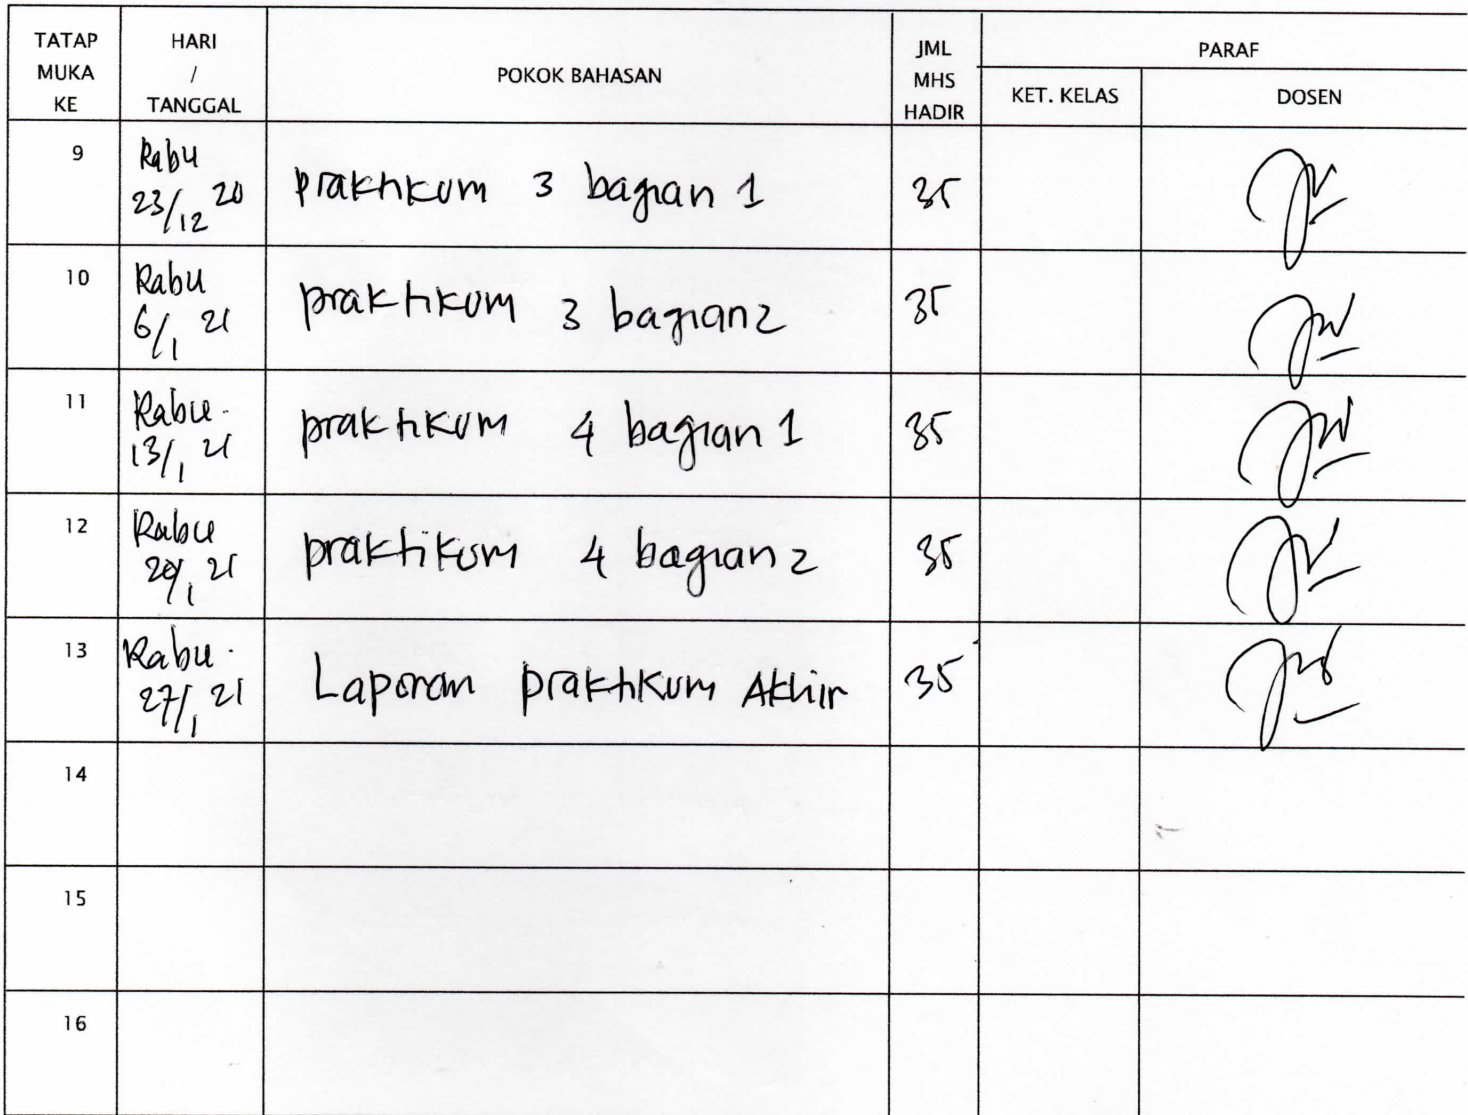 TATAP MUKA KE
HARI / TANGGAL
POKOK BAHASAN
JML MHS HADIR
PARAF
KET. KELAS
DOSEN
9 Rabu 23/12 20 praktikum 3 bagian 1 35
10 Rabu 6/1 21 praktikum 3 bagian 2 35
11 Rabu 13/1 21 praktikum 4 bagian 1 35
12 Rabu 20/1 21 praktikum 4 bagian 2 35
13 Rabu 27/1 21 Laporan praktikum Akhir 35
14
15
16